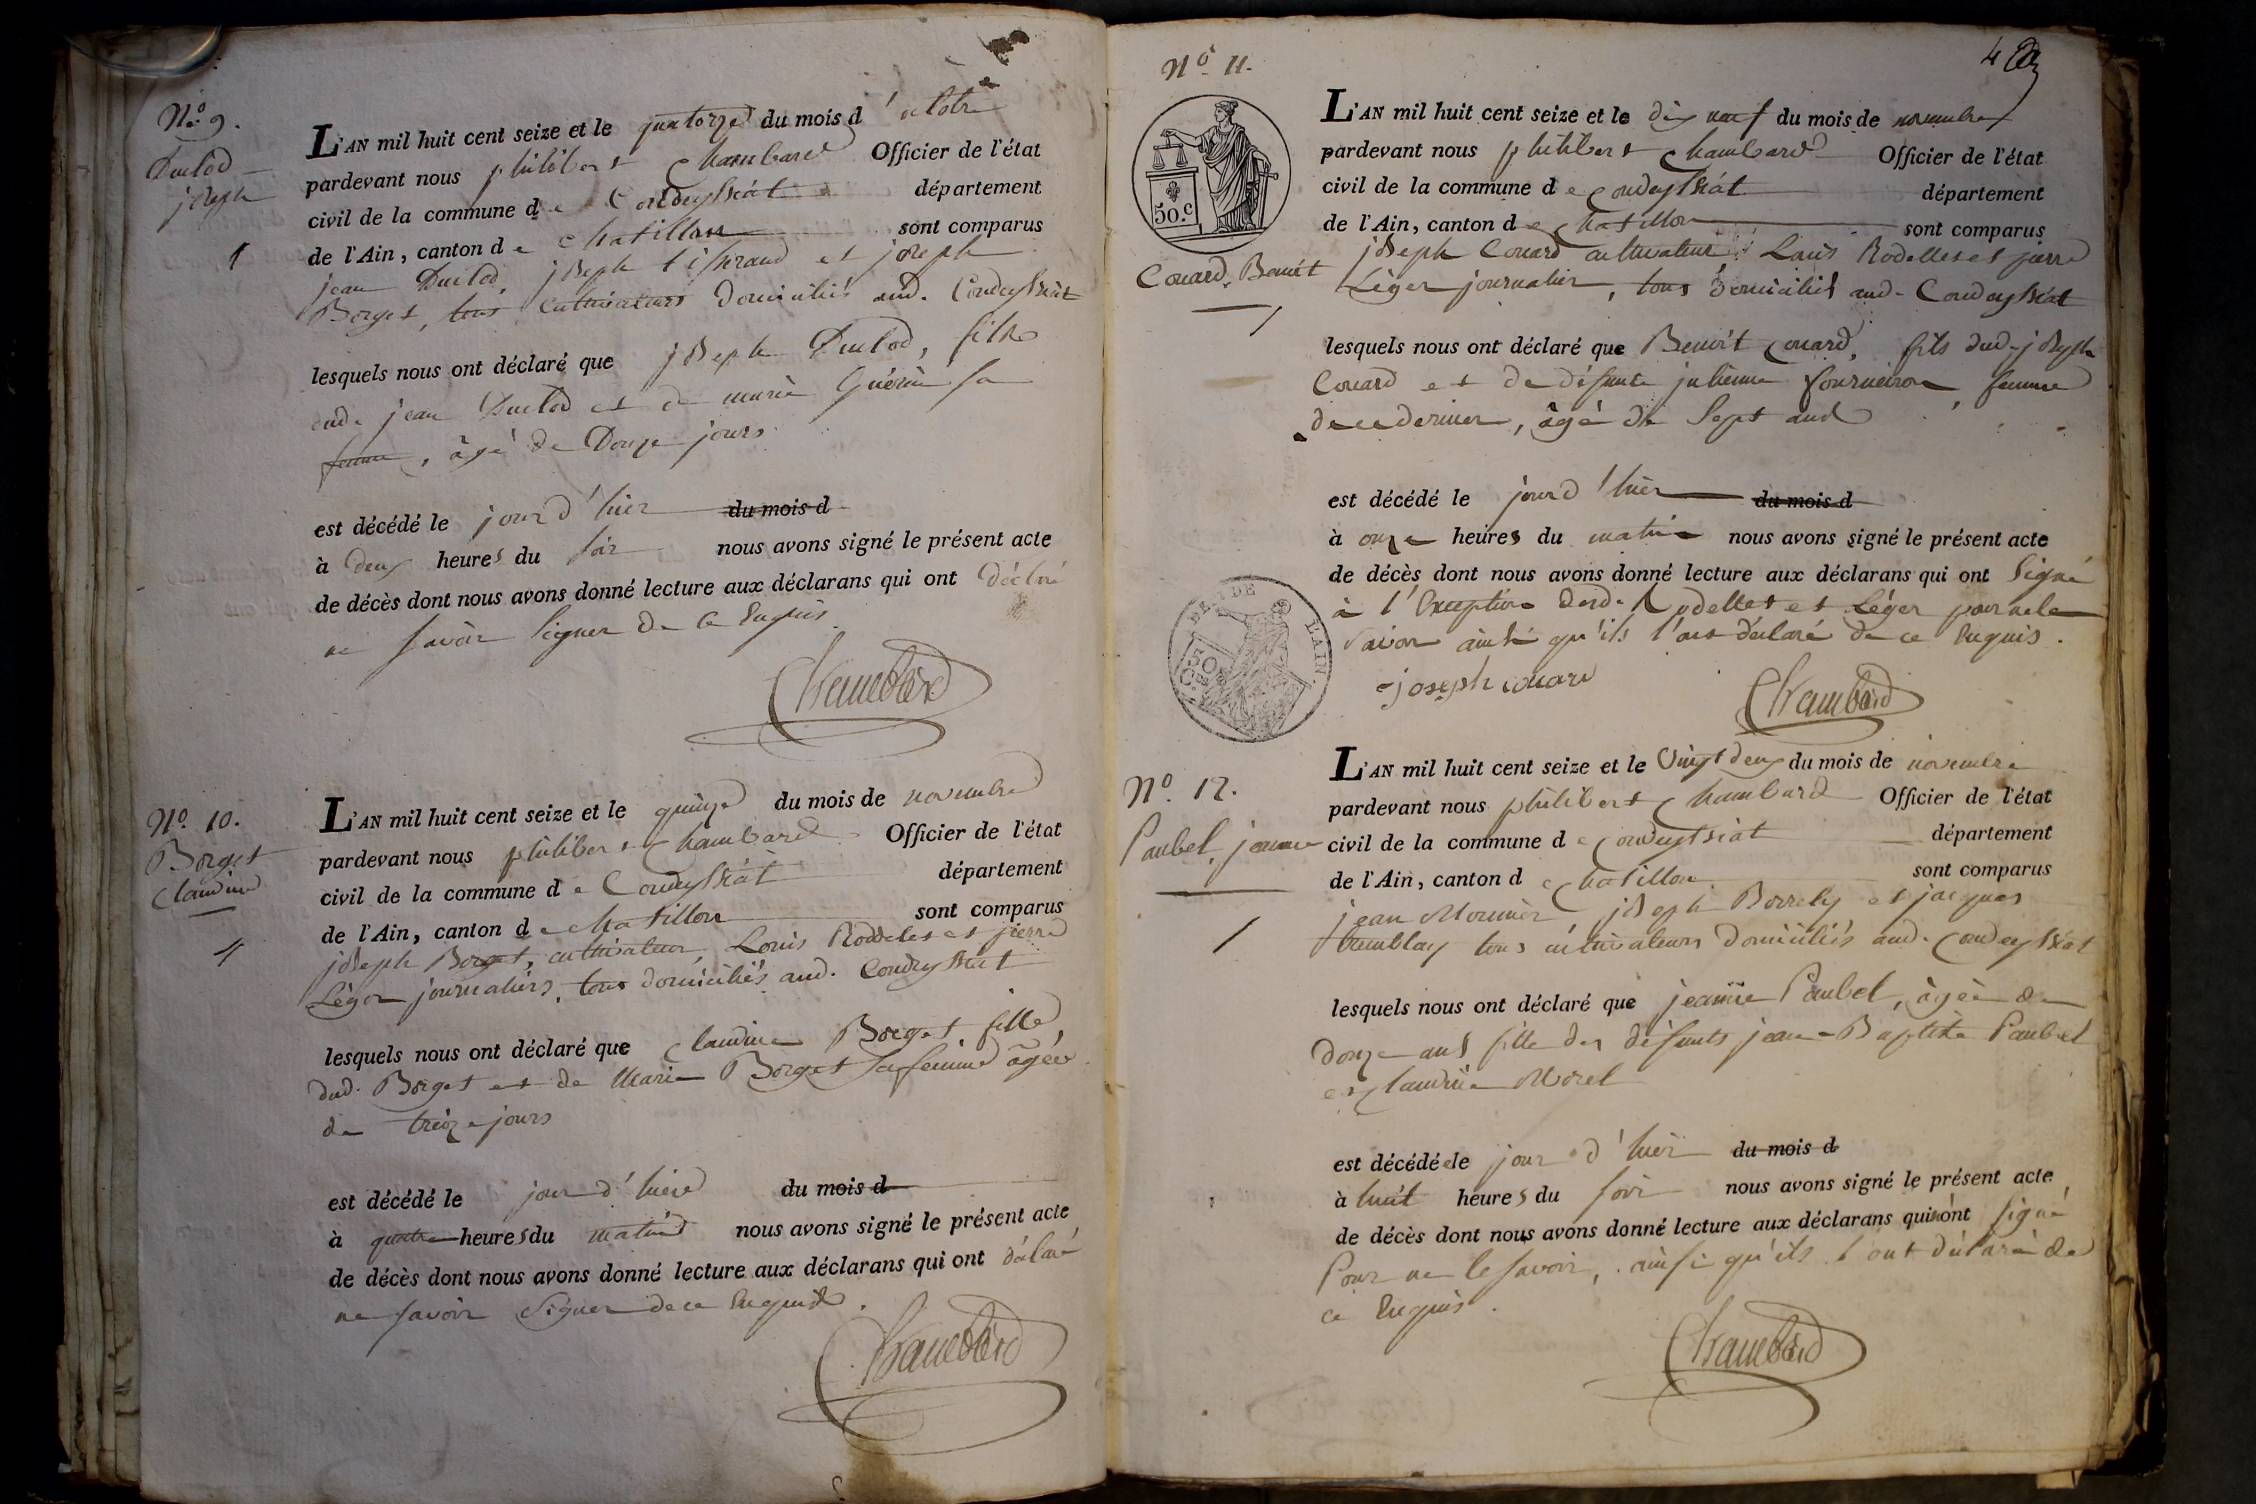 N.º 9.
Duclod
joseph
1
L'AN mil huit cent seize et le quatorze du mois d'octobre
pardevant nous philibert Chambard Officier de l'état
civil de la commune de Condeyssiat département
de l'Ain, canton de chatillon sont comparus
jean Duclod, joseph tisserand et joseph
Borget, tous cultivateurs domiciliés aud. Condeyssiat
lesquels nous ont déclaré que joseph Duclod, fils
dud. jean Duclod et de marie Guérin sa
femme, âgé de Douze jours
est décédé le jour d'hier du mois d
à deux heures du soir nous avons signé le présent acte
de décès dont nous avons donné lecture aux déclarans qui ont déclaré
ne savoir signer de ce Enquis.
Chambard
Nº. 10.
Borget
Claudine
1
L'AN mil huit cent seize et le quinze du mois de novembre
pardevant nous philibert Chambard Officier de l'état
civil de la commune de Condeyssiat département
de l'Ain, canton de chatillon sont comparus
joseph Borget, cultivateur, Louis Roddeles et pierre
Léger journaliers, tous domiciliés aud. Condeyssiat
lesquels nous ont déclaré que Claudine Borget fille,
dud. Borget et de Marie Borget sa femme âgée
de treize jours
est décédé le jour d'hier du mois d
à quatre heures du matin nous avons signé le présent acte
de décès dont nous avons donné lecture aux déclarans qui ont déclaré
ne savoir signer de ce Enquis.
Chambard
4
Nº. 11.
50.c
Couard, Benoit
L'AN mil huit cent seize et le dix neuf du mois de novembre
pardevant nous philibert Chambard Officier de l'état
civil de la commune de Condeyssiat département
de l'Ain, canton de chatillon sont comparus
joseph Couard cultivateur, Louis Rodelles et pierre
Léger journalier, tous domiciliés aud. Condeyssiat
lesquels nous ont déclaré que Benoit Couard, fils dud. joseph
Couard et de défunte julienne fourneiron femme
de ce dernier, âgé de Sept ans
est décédé le jour d'hier du mois d
à onze heures du matin nous avons signé le présent acte
de décès dont nous avons donné lecture aux déclarans qui ont signé
à l'Exception desd. Rodelles et Léger pour ne le
savoir ainsi qu'ils l'ont déclaré de ce Enquis.
DEP. DE L'AIN.
50 C.
joseph couard
Chambard
Nº. 12.
Paubel, jeanne
1
L'AN mil huit cent seize et le Vingt deux du mois de novembre
pardevant nous philibert Chambard Officier de l'état
civil de la commune de Condeyssiat département
de l'Ain, canton de chatillon sont comparus
jean Mounier joseph Borrely et jacques
tremblay tous cultivateurs domiciliés aud. Condeyssiat
lesquels nous ont déclaré que jeanne Paubel, âgée de
douze ans fille des défunts jean-Baptiste Paubel
et Claudine Morel
est décédée le jour d'hier du mois d
à huit heures du soir nous avons signé le présent acte
de décès dont nous avons donné lecture aux déclarans qui n'ont signé
Pour ne le savoir, ainsi qu'ils l'ont déclaré de
ce Enquis.
Chambard